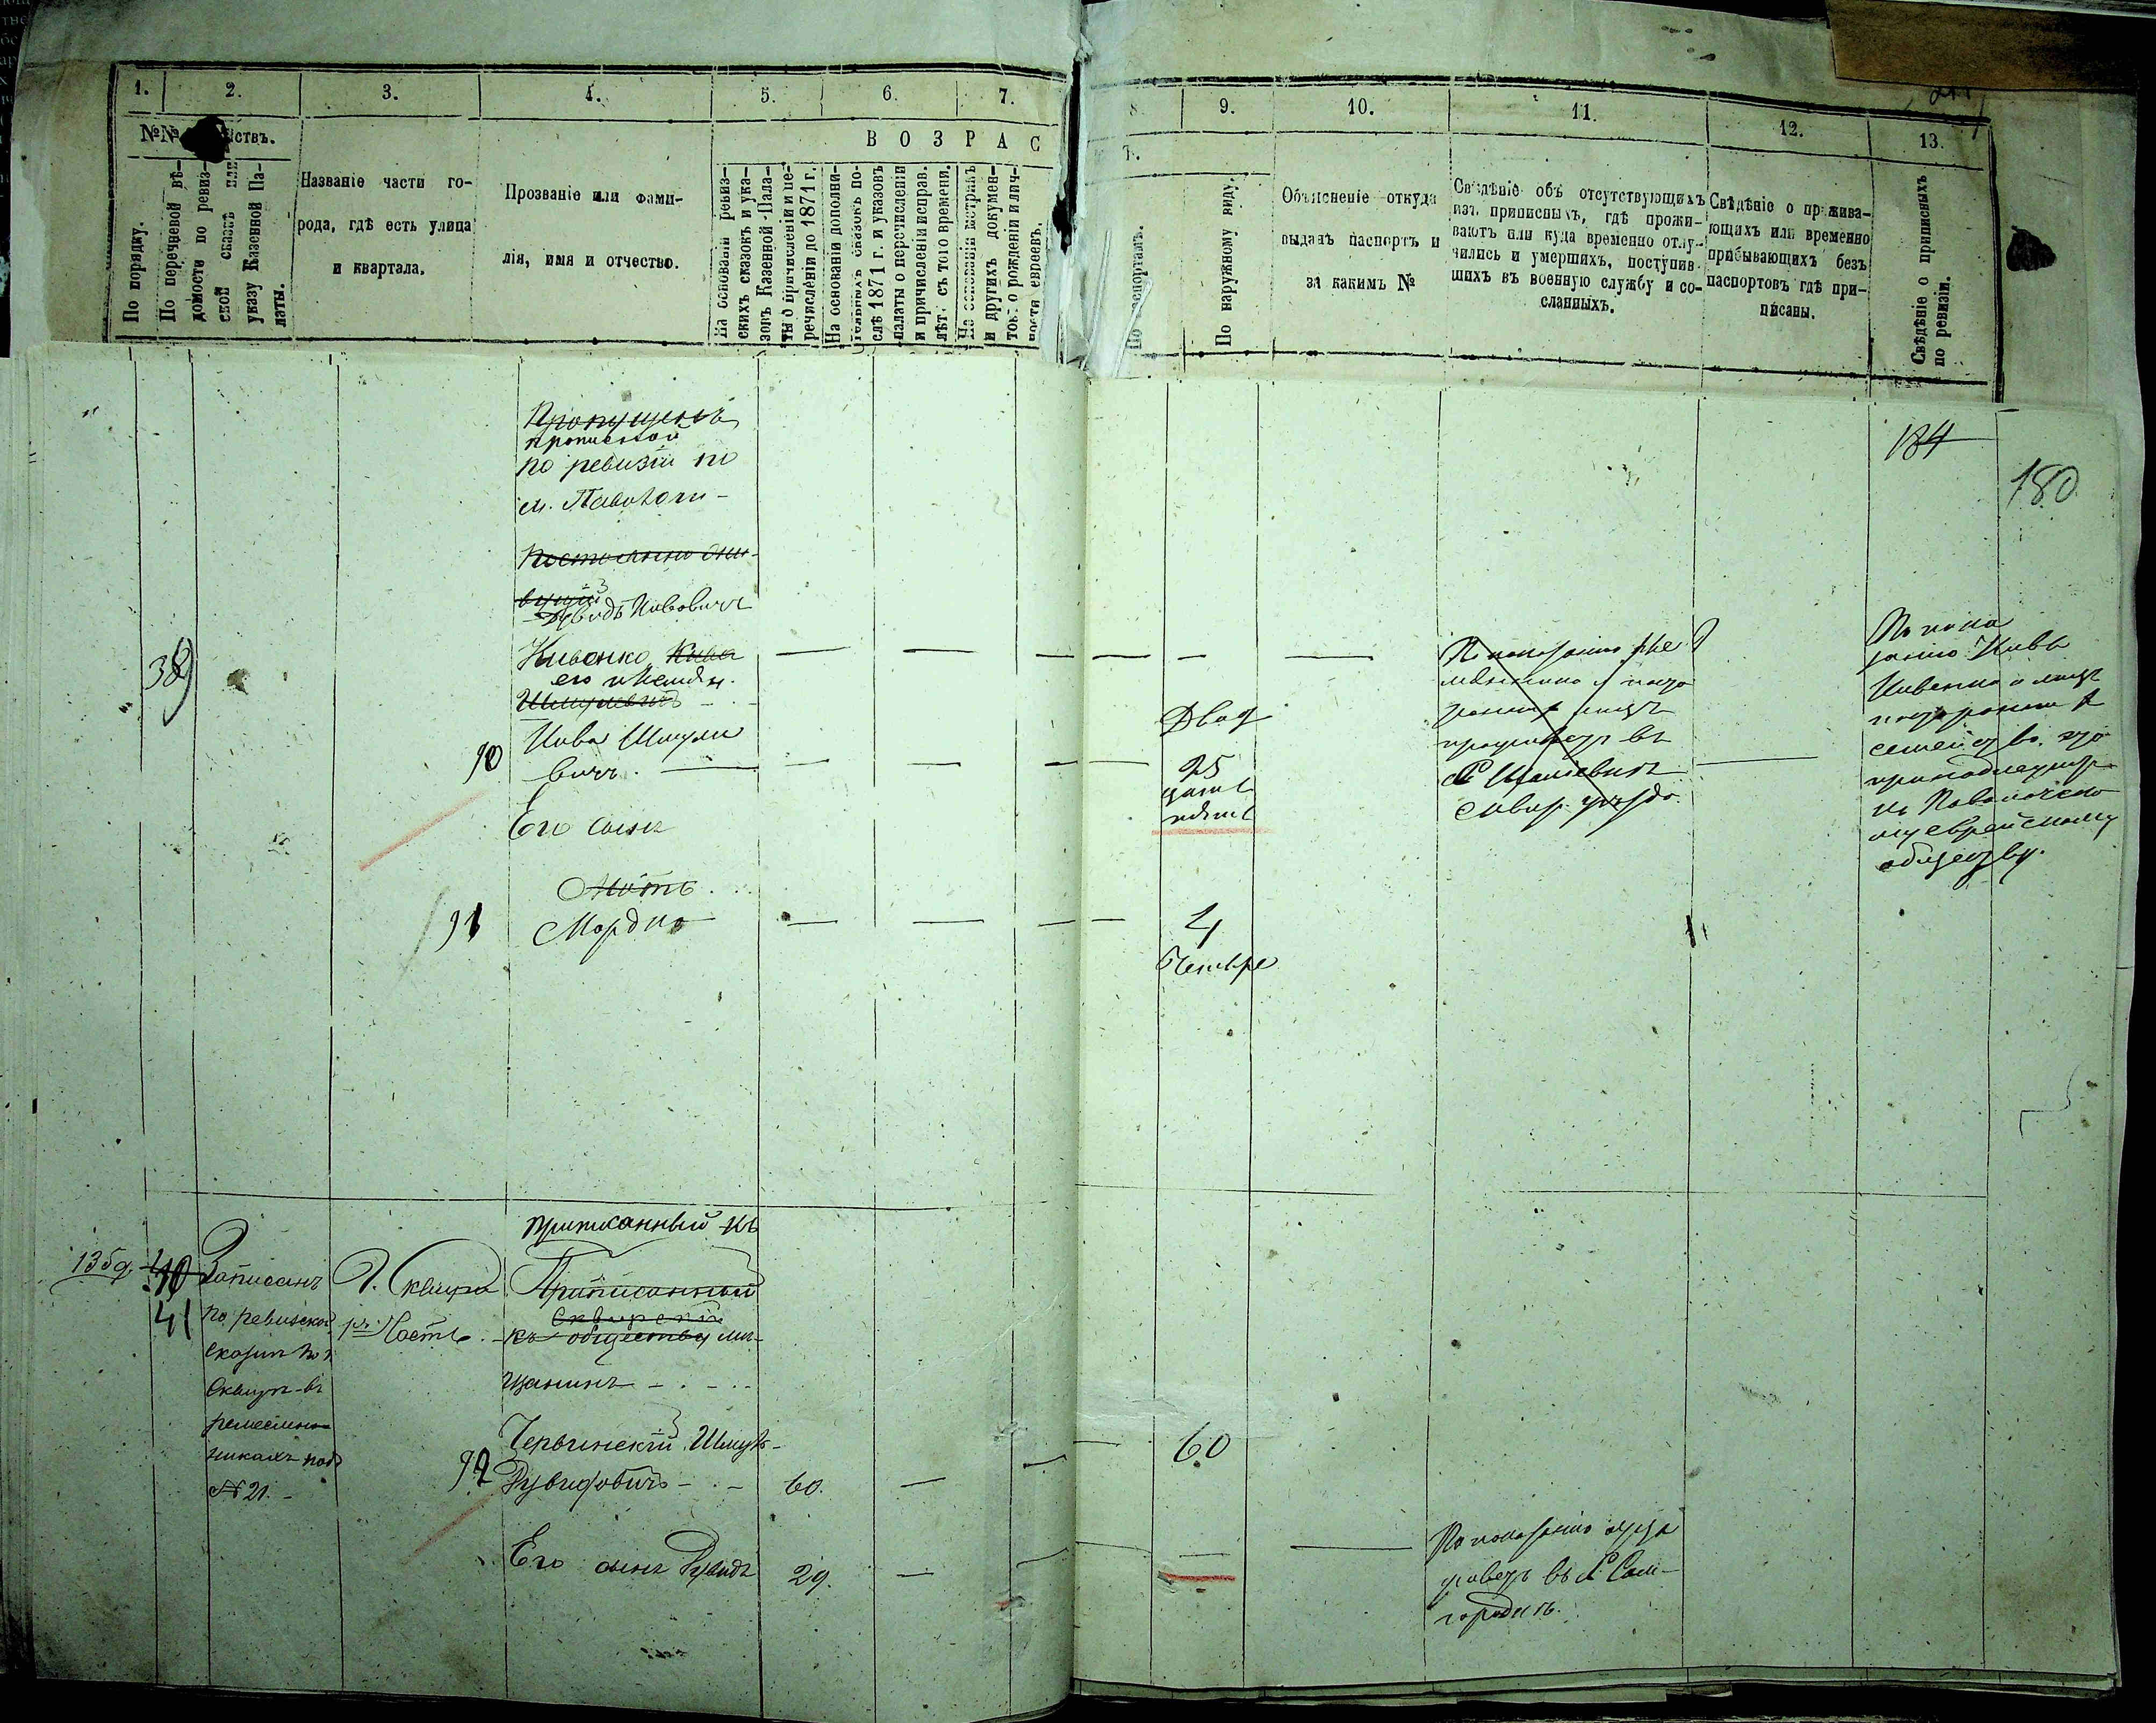 1. 2. 3. 4. 5. 6. 7.
8. 9. 10. 11. 12. 13.
№№ йствъ.
В О З Р А С
Т.
По порядку.
По перечневой вѣ-
домости по ревиз-
ской сказкѣ или
указу Казенной Па-
латы.
Названіе части го-
рода, гдѣ есть улица
и квартала.
Прозваніе или фами-
лія, имя и отчество.
На основаніи ревиз-
скихъ сказокъ и ука-
зовъ Казенной Пала-
ты о причисленіи и пе-
речисленіи до 1871 г.
На основаніи дополни-
тельныхъ сказокъ по-
слѣ 1871 г. и указовъ
палаты о перечисленіи
и причисленіи исправ.
лѣт. съ того времени.
На основаніи метрикъ
и другихъ докумен-
товъ о рожденіи и лич-
ности евреевъ.
По паспортамъ.
По наружному виду.
Объясненіе откуда
выданъ паспортъ и
за какимъ №
Свѣдѣніе объ отсутствующихъ
изъ приписныхъ, гдѣ прожи-
ваютъ или куда временно отлу-
чились и умершихъ, поступив-
шихъ въ военную службу и со-
сланныхъ.
Свѣдѣніе о прожива-
ющихъ или временно
прибывающихъ безъ
паспортовъ гдѣ при-
писаны.
Свѣдѣніе о приписныхъ
по ревизіи.
184
180
Пропущенъ
припиской
по ревизіи по
м. Паволочи -
Постоянно жи-
вущій
39
Кивенко Кива
его
Шмулевичъ
90
Кива Шмуле
вичъ.
Его сынъ
Мордко
91
Двад
25
цать
пять
4
Четыре
По пока
занію Кивы
Кивенка и лицъ
постороннихъ
семейство это
принадлежитъ
къ Паволочско
му еврейскому
обществу.
приписанный къ
135 д.
40
41
Записанъ
по ревизской
сказкѣ по г.
Сквирѣ въ
ремеслен-
никахъ подъ
№ 21. -
Г. Сквира
1я Часть.
Приписанный
Сквирскій
къ обществу мѣ-
щанинъ
Червинскій Шмуль
92
Рувидовичъ -
60.
60
Его сынъ Рувидъ
29.
По показанію отца
живетъ въ С. Сам-
городкѣ.